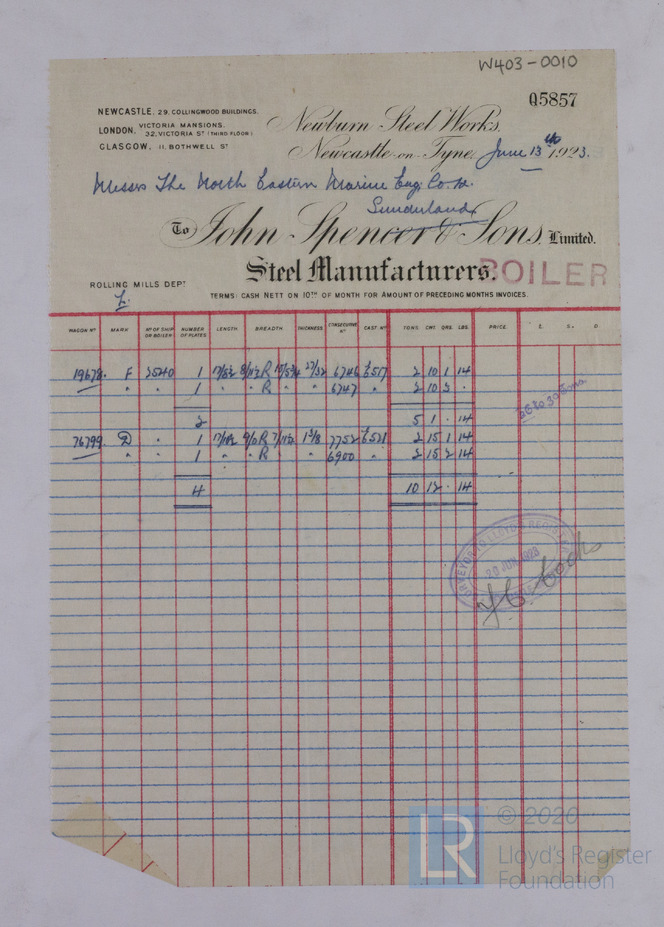 W403-0010
Q5857
NEWCASTLE, 29, COLLINGWOOD BUILDINGS.
LONDON, VICTORIA MANSIONS, 32, VICTORIA ST (THIRD FLOOR)
GLASGOW, 11, BOTHWELL ST
Newburn Steel Works,
Newcastle-on-Tyne, June 13th 1923.
Messrs The North Eastern Marine Eng. Co. Ld.
Sunderland
To John Spencer & Sons, Limited.
Steel Manufacturers.
BOILER
ROLLING MILLS DEPT
TERMS: CASH NETT ON 10TH OF MONTH FOR AMOUNT OF PRECEDING MONTHS INVOICES.
WAGON No MARK No OF SHIP OR BOILER NUMBER OF PLATES LENGTH BREADTH THICKNESS CONSECUTIVE No CAST No TONS CWT. QRS. LBS. PRICE. £. S. D
19678. F 2540 1 R 27/32 6746 2 10 1 14
" " 1 " R " 6747 " 2 10 3 "
2 5 1 " 14
76799. D " 1 R 1 3/8 7752 2 15 1 14
" " 1 " R " 6900 " 2 15 2 14
4 10 12 " 14
26 to 30 tons
SURVEYOR TO LLOYD'S REGISTER
20 JUN 1923
© 2020
LR
Lloyd's Register
Foundation